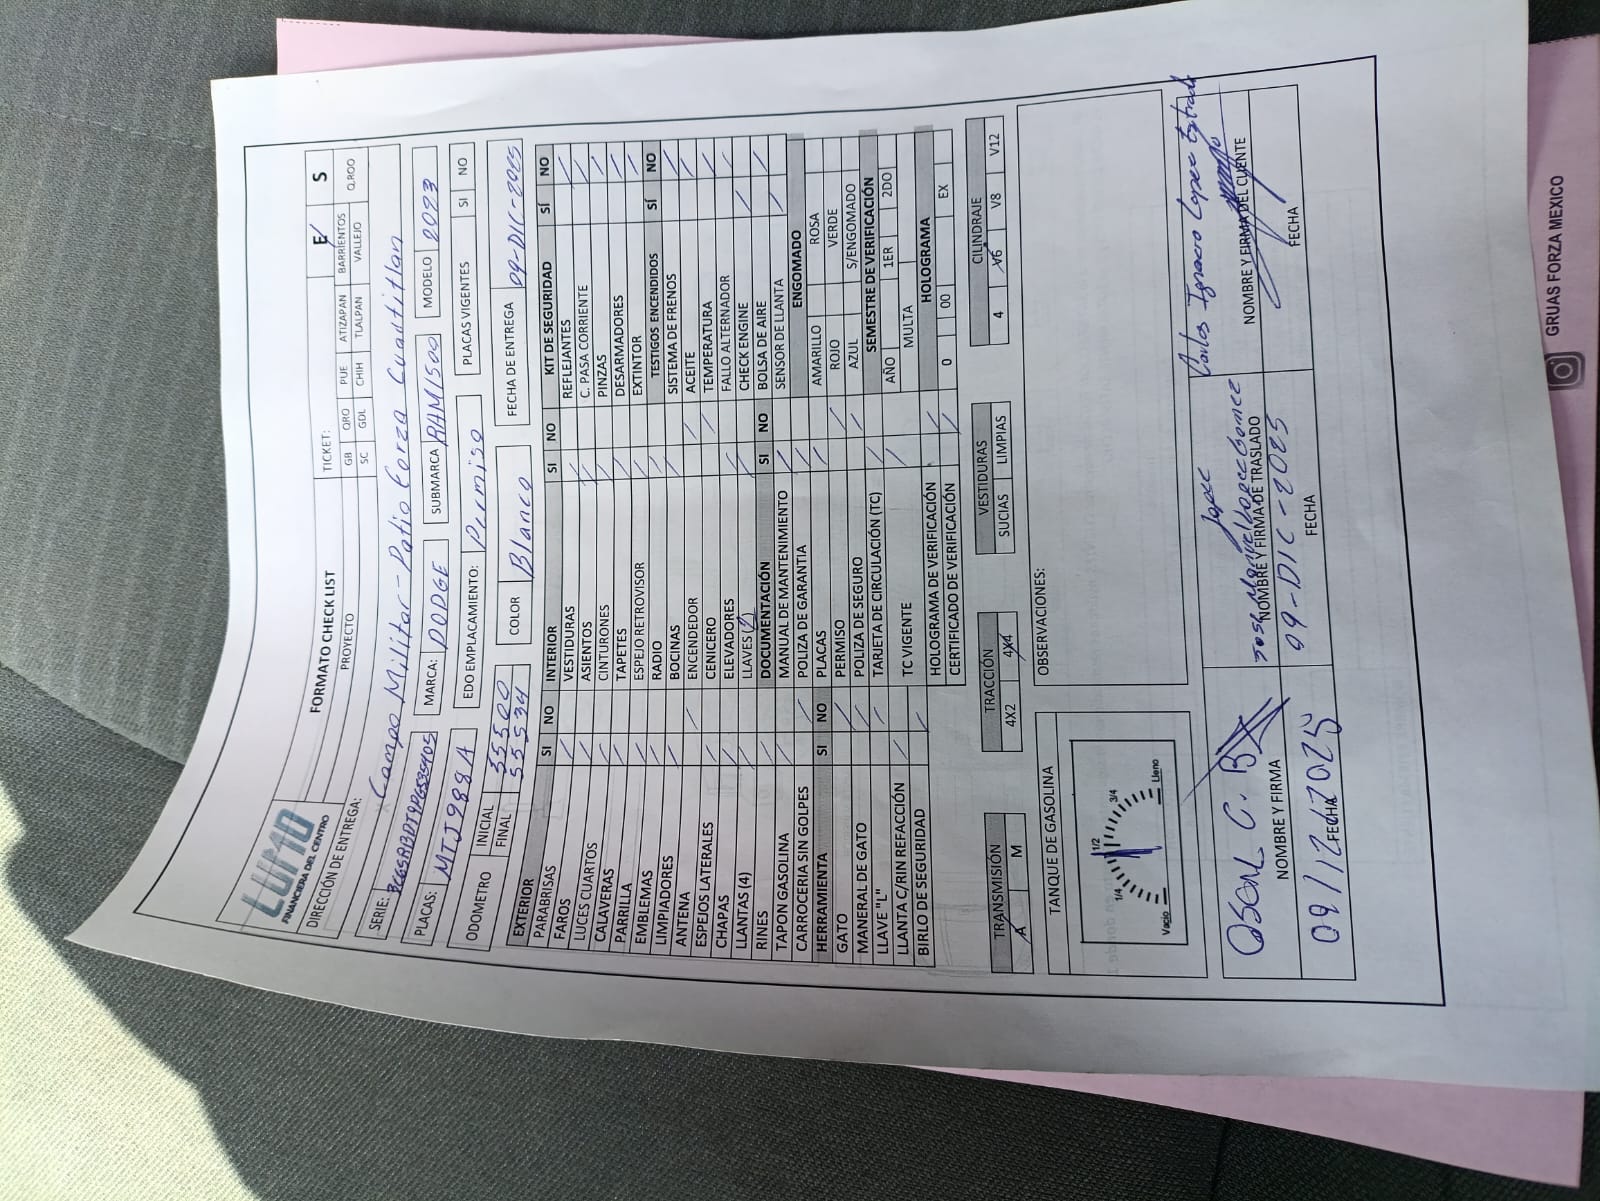 LUMO
FINANCIERA DEL CENTRO
FORMATO CHECK LIST
TICKET:
E S
DIRECCIÓN DE ENTREGA:
PROYECTO
GB QRO PUE ATIZAPAN BARRIENTOS Q.ROO
SC GDL CHIH TLALPAN VALLEJO
Campo Militar - Patio Forza Cuautitlan
SERIE:
MARCA: DODGE
SUBMARCA RAM 1500
MODELO 2023
PLACAS: MTJ988A
EDO EMPLACAMIENTO: Permiso
PLACAS VIGENTES SI NO
ODOMETRO
INICIAL 55500
FINAL 55534
COLOR Blanco
FECHA DE ENTREGA 09-DIC-2025
EXTERIOR SI NO
PARABRISAS
FAROS
LUCES CUARTOS
CALAVERAS
PARRILLA
EMBLEMAS
LIMPIADORES
ANTENA
ESPEJOS LATERALES
CHAPAS
LLANTAS (4)
RINES
TAPON GASOLINA
CARROCERIA SIN GOLPES
HERRAMIENTA SI NO
GATO
MANERAL DE GATO
LLAVE "L"
LLANTA C/RIN REFACCIÓN
BIRLO DE SEGURIDAD
INTERIOR SI NO
VESTIDURAS
ASIENTOS
CINTURONES
TAPETES
ESPEJO RETROVISOR
RADIO
BOCINAS
ENCENDEDOR
CENICERO
ELEVADORES
LLAVES (2)
DOCUMENTACIÓN SI NO
MANUAL DE MANTENIMIENTO
POLIZA DE GARANTIA
PLACAS
PERMISO
POLIZA DE SEGURO
TARJETA DE CIRCULACIÓN (TC)
TC VIGENTE
HOLOGRAMA DE VERIFICACIÓN
CERTIFICADO DE VERIFICACIÓN
KIT DE SEGURIDAD SÍ NO
REFLEJANTES
C. PASA CORRIENTE
PINZAS
DESARMADORES
EXTINTOR
TESTIGOS ENCENDIDOS SÍ NO
SISTEMA DE FRENOS
ACEITE
TEMPERATURA
FALLO ALTERNADOR
CHECK ENGINE
BOLSA DE AIRE
SENSOR DE LLANTA
ENGOMADO
AMARILLO ROSA
ROJO VERDE
AZUL S/ENGOMADO
SEMESTRE DE VERIFICACIÓN
AÑO 1ER 2DO
MULTA
HOLOGRAMA
0 00 EX
TRANSMISIÓN
A M
TRACCIÓN
4X2 4X4
VESTIDURAS
SUCIAS LIMPIAS
CILINDRAJE
4 V6 V8 V12
TANQUE DE GASOLINA
Vacio 1/4 1/2 3/4 Lleno
OBSERVACIONES:
Oscar C. B
NOMBRE Y FIRMA
09/12/2025
FECHA
Jose Manuel Lopez Gomez
NOMBRE Y FIRMA DE TRASLADO
09-DIC-2025
FECHA
Carlos Ignacio Lopez Estrada
NOMBRE Y FIRMA DEL CLIENTE
FECHA
GRUAS FORZA MEXICO